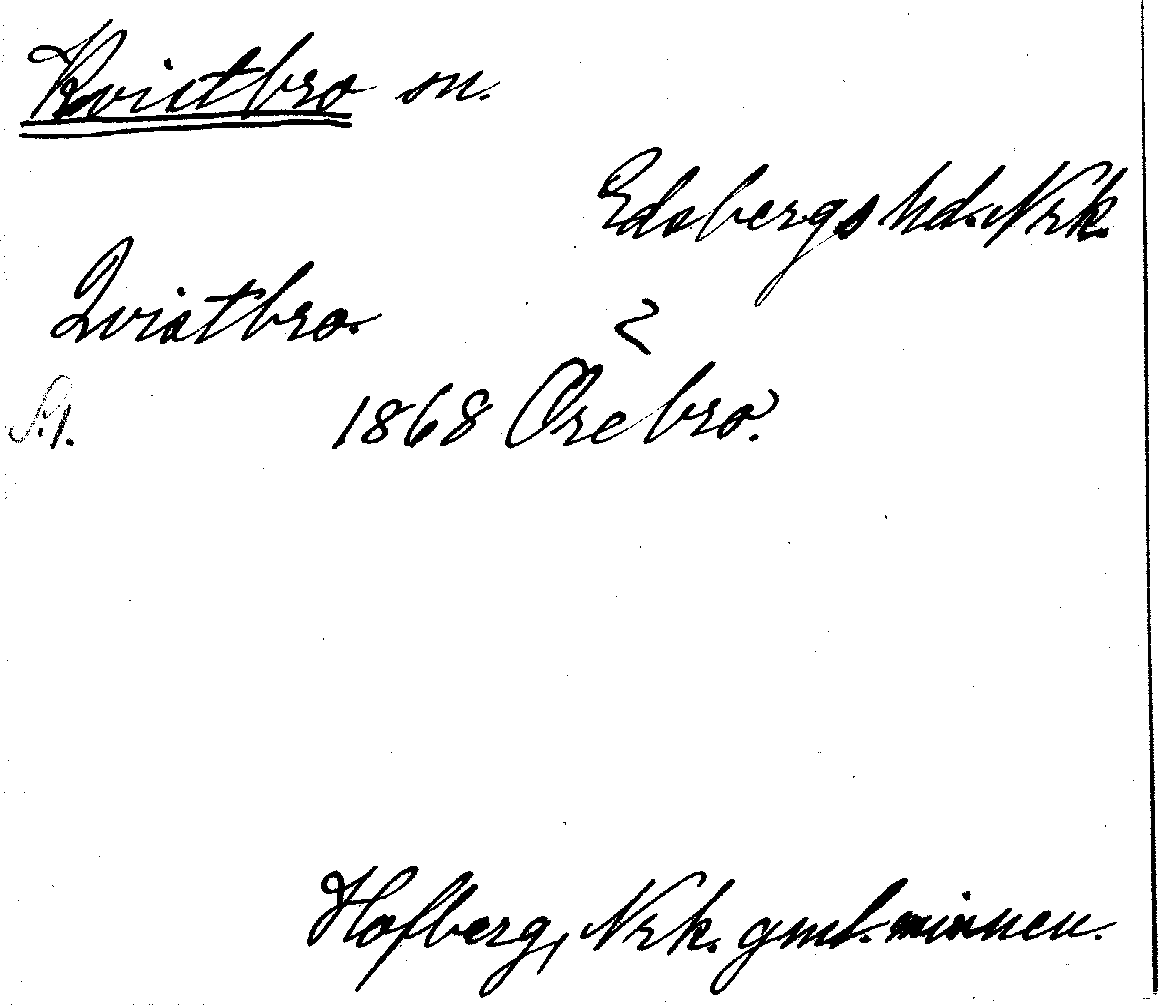 Kvistbro sn.
Edsbergs hd. Nrk.
Qvistbro.
1868 Örebro.
Hofberg, Nrk. gml. minnen.